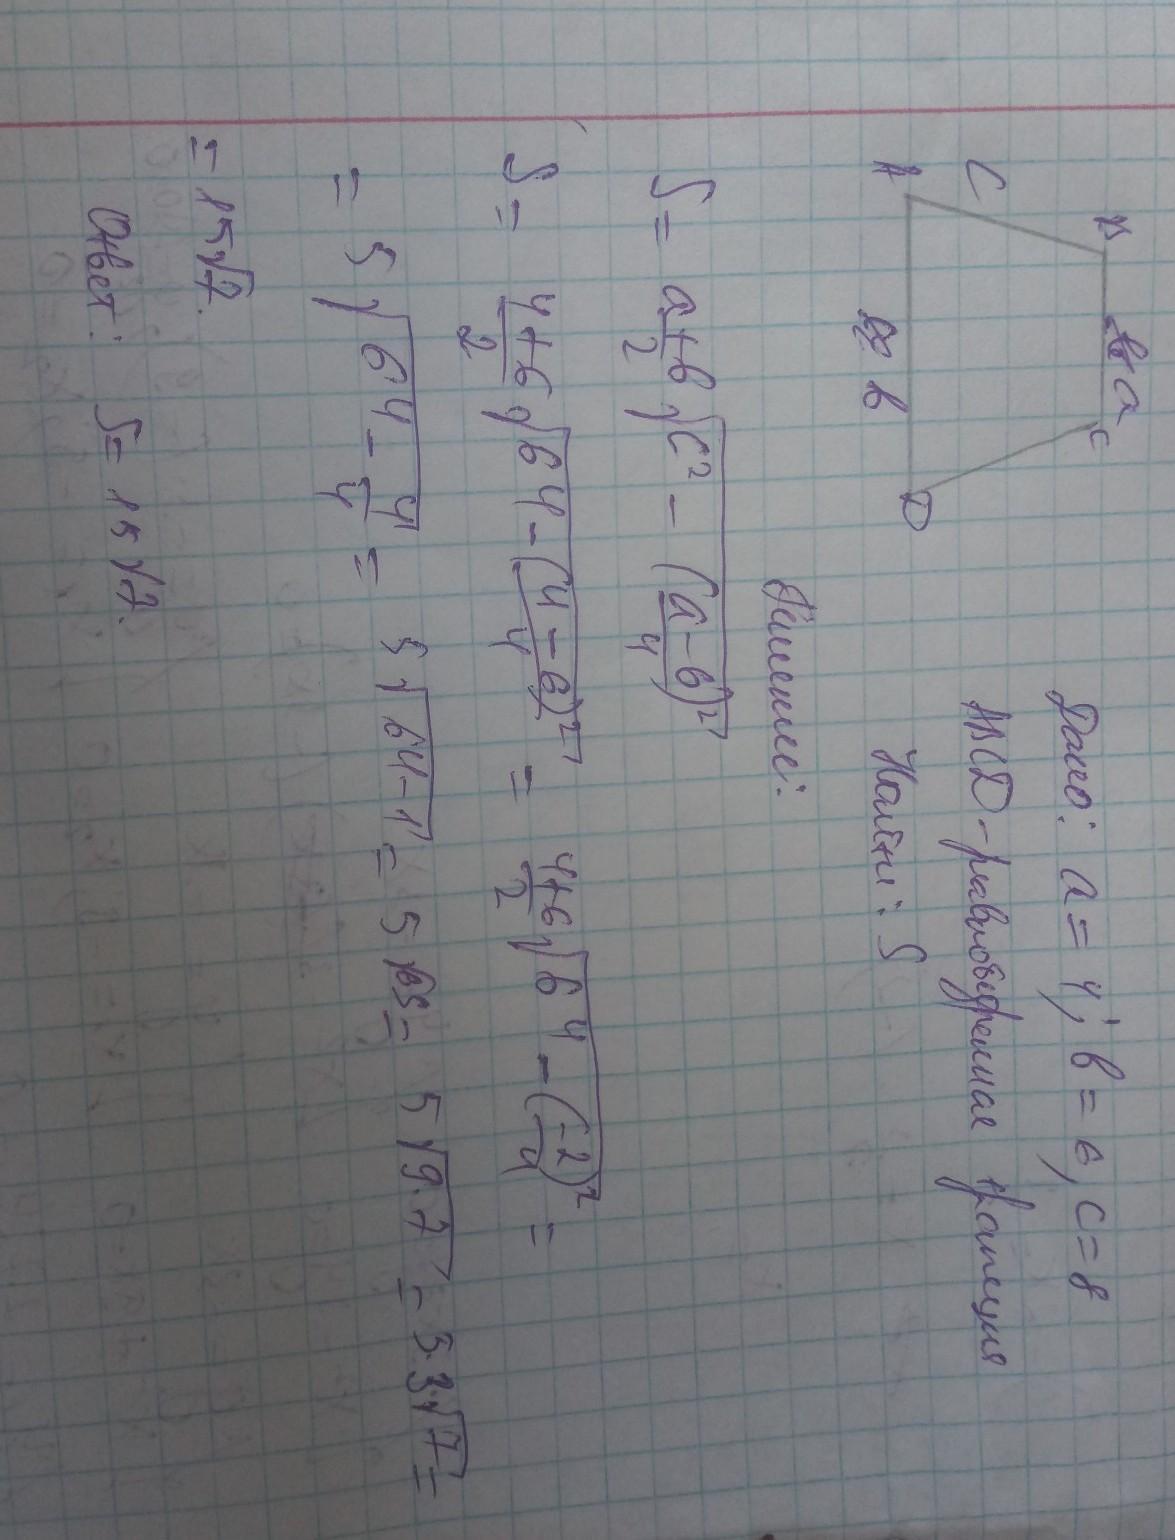 Дано: a = 4; b = 6, c = 8
ABCD - равнобедренная трапеция
Найти: S
B a C
C
A b D
Решение:
S = a+b/2 √(c² - (a-b)²/4)
S = 4+6/2 √(64 - (4-6)²/4) = 4+6/2 √(64 - (-2)²/4) =
= 5√(64 - 4/4) = 5√(64-1) = 5√63 = 5√(9·7) = 5·3·√7 =
= 15√7.
Ответ: S = 15√7.